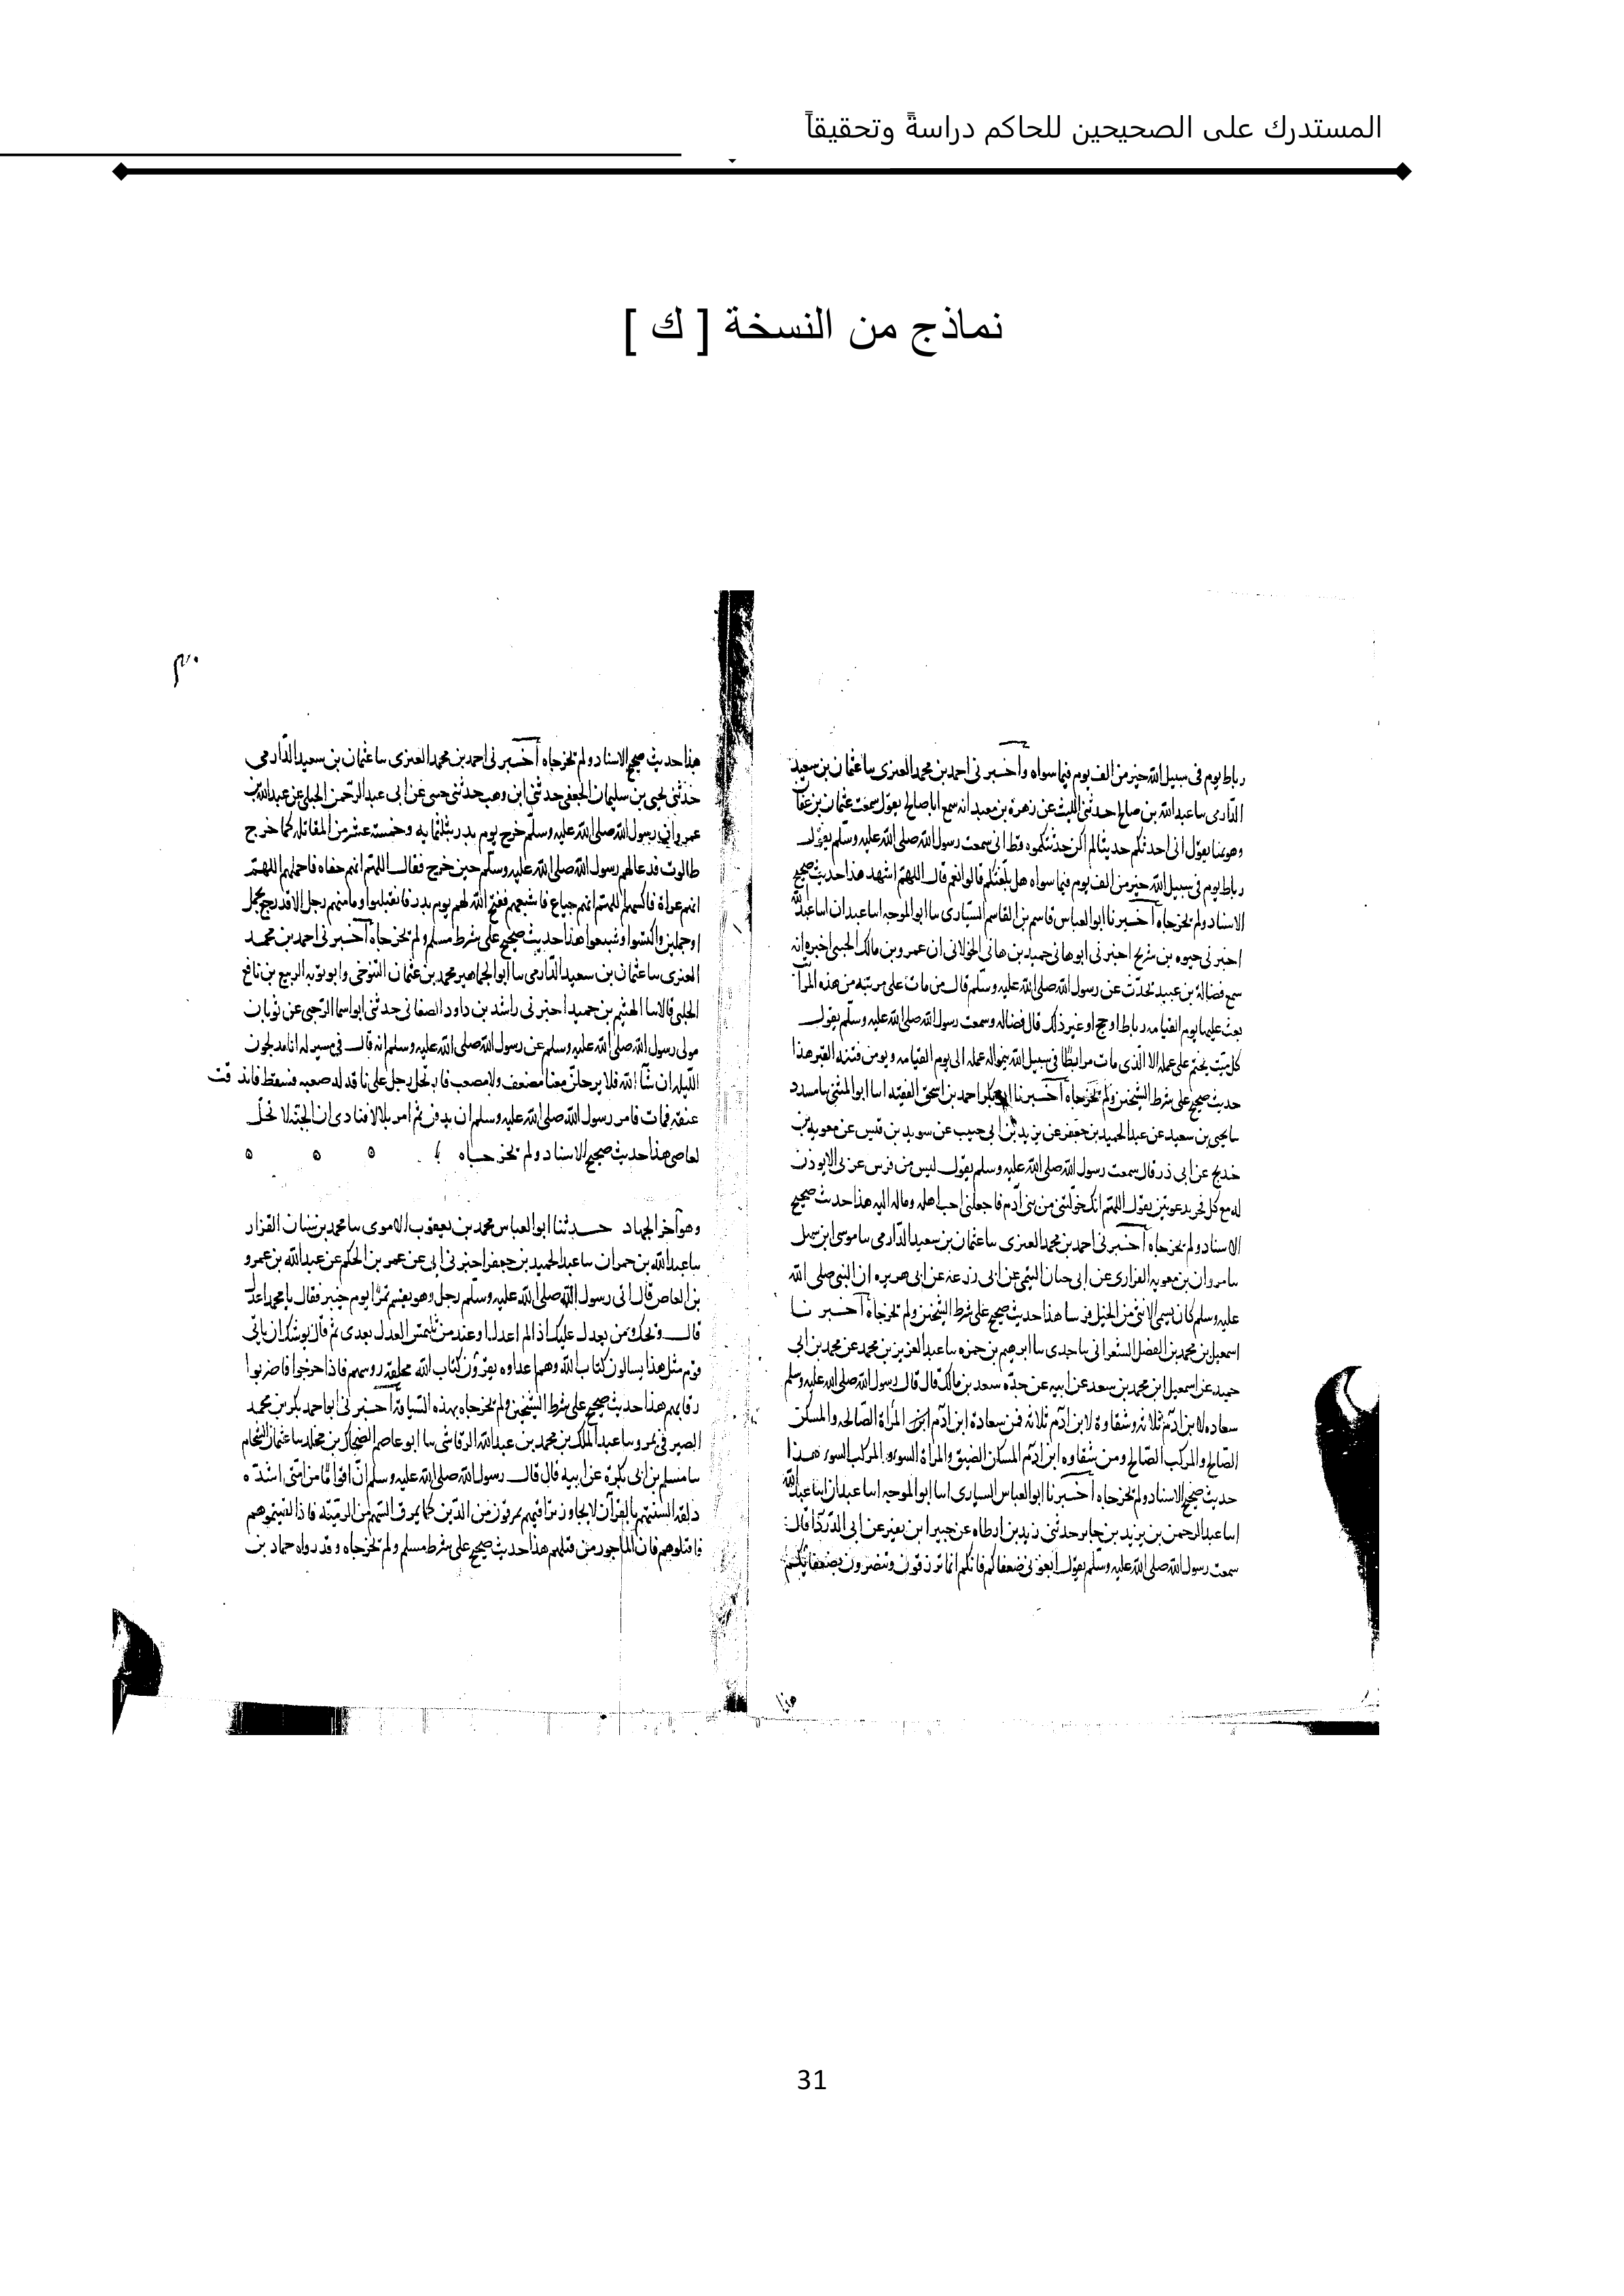 المستدرك على الصحيحين للحاكم دراسةً وتحقيقاً
نماذج من النسخة [ ك ]
رباط يوم فى سبيل الله خير من الف يوم فيما سواه واخبرنى احمد بن محمد العنزى ساعثمان بن سعيد
الدارمى ساعبد الله بن صالح حدثنى الليث عن زهرة بن معبد انه سمع اباصالح يقول سمعت عثمان بن عفان
وهو بمنا يقول انى احدثكم حديثا لم اكن حدثتكموه قط انى سمعت رسول الله صلى الله عليه وسلم يقول
رباط يوم فى سبيل الله خير من الف يوم فيما سواه هل بلغتكم قالوا نعم قال اللهم اشهد هذا حديث صحيح
الاسناد ولم يخرجاه اخبرنا ابو العباس قاسم بن القاسم السيارى سا ابو الموجه اسا عبدان اسا عبد الله
اخبرنى حيوه بن شريح اخبرنى ابو هانى حميد بن هانى الخولانى ان عمرو بن مالك الجنبى اخبره انه
سمع فضالة بن عبيد يحدث عن رسول الله صلى الله عليه وسلم قال من مات على مرتبه من هذه المراتب
بعث عليها يوم القيامه رباط او حج او غير ذلك قال فضاله وسمعت رسول الله صلى الله عليه وسلم يقول
كل ميت يختم على عمله الا الذى مات مرابطا فى سبيل الله ينمو له عمله الى يوم القيامه ويومن فتنه القبر هذا
حديث صحيح على شرط الشيخين ولم يخرجاه اخبرنا ابو بكر احمد بن اسحق الفقيه اسا ابو المثنى سا مسدد
سا يحيى بن سعيد عن عبد الحميد بن جعفر عن يزيد بن ابى حبيب عن سويد بن قيس عن معويه بن
خديج عن ابى ذر قال سمعت رسول الله صلى الله عليه وسلم يقول ليس من فرس عربى الا يوذن
له مع كل فجر بدعوتين يقول اللهم انك خولتنى من بنى آدم فاجعلنى احب اهله وماله اليه هذا حديث صحيح
الاسناد ولم يخرجاه اخبرنى احمد بن محمد العنزى ساعثمان بن سعيد الدارمى سا موسى ابن سهل
سا مروان بن معويه الفزارى عن ابى حيان التيمى عن ابى زرعة عن ابى هريره ان النبى صلى الله
عليه وسلم كان يسمى الانثى من الخيل فرسا هذا حديث صحيح على شرط الشيخين ولم يخرجاه اخبرنا
اسمعيل بن محمد بن الفضل الشعرانى سا جدى سا ابرهيم بن حمزه سا عبد العزيز بن محمد عن محمد بن ابى
حميد عن اسمعيل ابن محمد بن سعد عن ابيه عن جده سعد بن مالك قال قال رسول الله صلى الله عليه وسلم
سعاده لابن آدم ثلاثه وشقاوة لابن آدم ثلاثه فمن سعادة ابن آدم المرأة الصالحه والمسكن
الصالح والمركب الصالح ومن شقاوه ابن آدم المسكن الضيق والمراة السوء والمركب السوء هذا
حديث صحيح الاسناد ولم يخرجاه اخبرنا ابو العباس السيارى اسا ابو الموجه اسا عبدان اسا عبد الله
اسا عبد الرحمن بن يزيد بن جابر حدثنى زيد بن ارطاه عن جبير ابن نفير عن ابى الدردا قال
سمعت رسول الله صلى الله عليه وسلم يقول ابغونى ضعفاكم فانكم انما ترزقون وتنصرون بضعفائكم
هذا
هذا حديث صحيح الاسناد ولم يخرجاه اخبرنى احمد بن محمد العنزى ساعثمان بن سعيد الدارمى
حدثنى يحيى بن سليمان الجعفى حدثنى ابن وهب حدثنى حيى عن ابى عبد الرحمن الحبلى عن عبد الله بن
عمرو ان رسول الله صلى الله عليه وسلم خرج يوم بدر بثلثمايه وخمسة عشر من المقاتله كما خرج
طالوت فدعا لهم رسول الله صلى الله عليه وسلم حين خرج فقال اللهم انهم حفاه فاحملهم اللهم
انهم عراة فاكسهم اللهم انهم جياع فاشبعهم ففتح الله لهم يوم بدر فانقلبوا وما منهم رجل الا قد رجع بجمل
او جملين واكتسوا وشبعوا هذا حديث صحيح على شرط مسلم ولم يخرجاه اخبرنى احمد بن محمد
العنزى ساعثمان بن سعيد الدارمى سا ابو الجماهير محمد بن عثمان التنوخى وابو توبه الربيع بن نافع
الحلبى قالا سا الهيثم بن حميد اخبرنى راشد بن داود الصنعانى حدثنى ابو اسما الرحبى عن ثوبان
مولى رسول الله صلى الله عليه وسلم عن رسول الله صلى الله عليه وسلم انه قال فى مسير له انا مدلجون
الليله ان شآ الله فلا يرحلن معنا مضعف ولا مصعب فارتحل رجل على ناقه له صعبه فسقط فاندقت
عنقه فمات فامر رسول الله صلى الله عليه وسلم ان يدفن ثم امر بلالا فنادى ان الجنة لا تحل
لعاصى هذا حديث صحيح الاسناد ولم يخرجاه
وهو آخر الجهاد حدثنا ابو العباس محمد بن يعقوب الاموى سا محمد بن سنان القزاز
سا عبد الله بن حمران سا عبد الحميد بن جعفر اخبرنى ابى عن عمر بن الحكم عن عبد الله بن عمرو
بن العاص قال اتى رسول الله صلى الله عليه وسلم رجل وهو يقسم تمرا يوم خيبر فقال يا محمد اعدل
قال ويحك ومن يعدل عليك اذا لم اعدل او عند من تلتمس العدل بعدى ثم قال يوشك ان ياتى
قوم مثل هذا يسالون كتاب الله وهم اعداوه يقرؤن كتاب الله محلقه روسهم فاذا خرجوا فاضربوا
رقابهم هذا حديث صحيح على شرط الشيخين ولم يخرجاه بهذه السياقة اخبرنى ابو احمد بكر بن محمد
الصيرفى بمرو سا عبد الملك بن محمد بن عبد الله الرقاشى سا ابو عاصم الضحاك بن مخلد سا عثمان الشحام
سا مسلم بن ابى بكرة عن ابيه قال قال رسول الله صلى الله عليه وسلم ان اقواما من امتى اشدة
ذلقة السنتهم بالقرآن لا يجاوز تراقيهم يمرقون من الدين كما يمرق السهم من الرميه فاذا لقيتموهم
فاقتلوهم فان الماجور من قتلهم هذا حديث صحيح على شرط مسلم ولم يخرجاه وقد رواه حماد بن
31